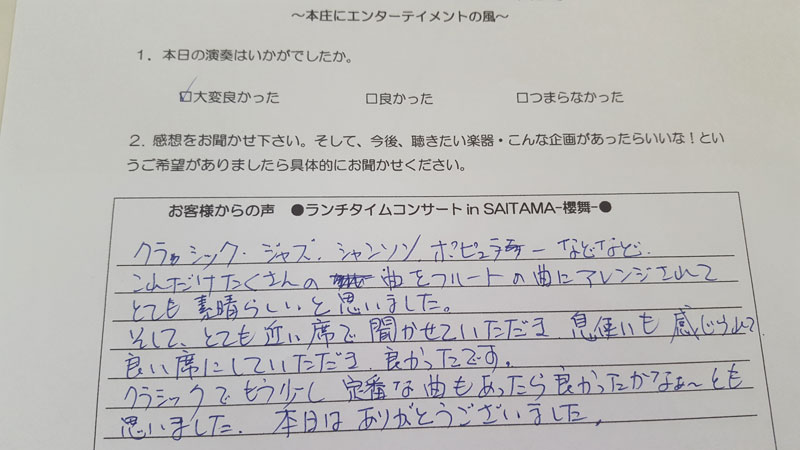 ～本庄にエンターテイメントの風～
1．本日の演奏はいかがでしたか。
☑大変良かった □良かった □つまらなかった
2．感想をお聞かせ下さい。そして、今後、聴きたい楽器・こんな企画があったらいいな！とい
うご希望がありましたら具体的にお聞かせください。
お客様からの声 ●ランチタイムコンサート in SAITAMA-櫻舞-●
クラッシック・ジャズ、シャンソン、ポピュラー などなど、
これだけたくさんの 曲をフルートの曲にアレンジされて
とても 素晴らしいと思いました。
そして、とても近い席で聞かせていただき 息使いも 感じられて
良い席にしていただき 良かったです。
クラシックで もう少し 定番な曲もあったら良かったかなぁ～とも
思いました。本日は ありがとうございました。